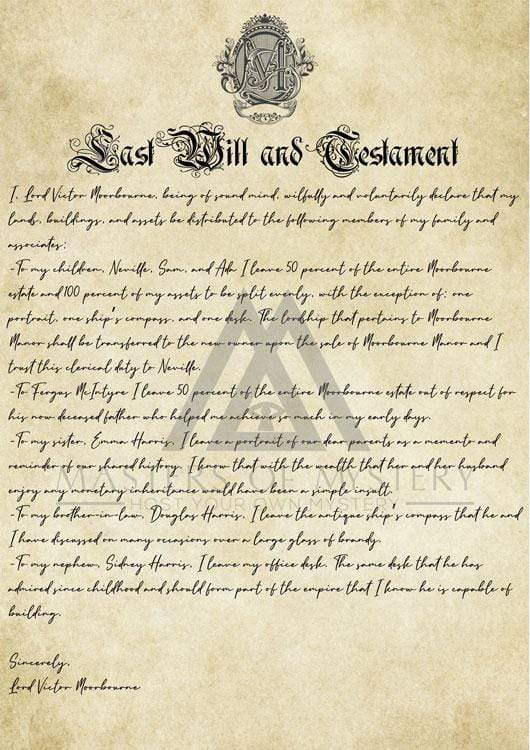 Last Will and Testament
I, Lord Victor Moorbourne, being of sound mind, wilfully and voluntarily declare that my
lands, buildings, and assets be distributed to the following members of my family and
associates:
-To my children, Neville, Sam, and Ada I leave 50 percent of the entire Moorbourne
estate and 100 percent of my assets to be split evenly, with the exception of: one
portrait, one ship's compass, and one desk. The lordship that pertains to Moorbourne
Manor shall be transferred to the new owner upon the sale of Moorbourne Manor and I
trust this clerical duty to Neville.
-To Fergus McIntyre I leave 50 percent of the entire Moorbourne estate out of respect for
his now deceased father who helped me achieve so much in my early days.
-To my sister, Emma Harris, I leave a portrait of our dear parents as a memento and
reminder of our shared history. I know that with the wealth that her and her husband
MASTERS OF MYSTERY
enjoy any monetary inheritance would have been a simple insult.
-To my brother-in-law, Douglas Harris, I leave the antique ship's compass that he and
I have discussed on many occasions over a large glass of brandy.
-To my nephew, Sidney Harris, I leave my office desk. The same desk that he has
admired since childhood and should form part of the empire that I know he is capable of
building.
Sincerely,
Lord Victor Moorbourne